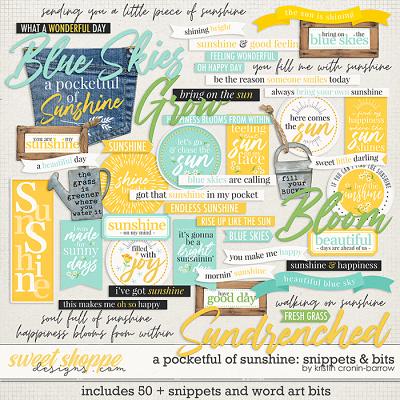 sending you a little piece of sunshine
the sun is shining
WHAT A WONDERFUL DAY
shining bright
bring on the
blue skies
Blue Skies
sunshine & good feelings
FEELING WONDERFUL
OH HAPPY DAY
you fill me with sunshine
a pocketful
of
Sunshine
be the reason someone smiles today
bring on the sun
always bring your own sunshine
Grow
HAPPINESS BLOOMS FROM WITHIN
here comes
the
sun
let's go
& chase
the
sun
feeling
the
sun
on my
face
you are my
sunshine
SUNSHINE
a beautiful day
blue skies are calling
sweet little darling
fill
your
BUCKET
the
grass
is
greener
where
you
water it
shine
got that sunshine in my pocket
ENDLESS SUNSHINE
Sunshine
RISE UP LIKE THE SUN
Bloom
I was
made
for
sunny
days
sunshine
on my mind
BLUE SKIES
it's gonna
be a
bright
sunshinin'
day
beautiful
days are ahead of us
filled
with
joy
you make me happy
sunshine & happiness
mornin' sunshine
beautiful blue sky
i've got sunshine
have a
good day
this makes me oh so happy
walking on sunshine
soul full of sunshine
FRESH GRASS
happiness blooms from within
Sundrenched
sweet shoppe
designs.com
a pocketful of sunshine: snippets & bits
by kristin cronin-barrow
includes 50 + snippets and word art bits